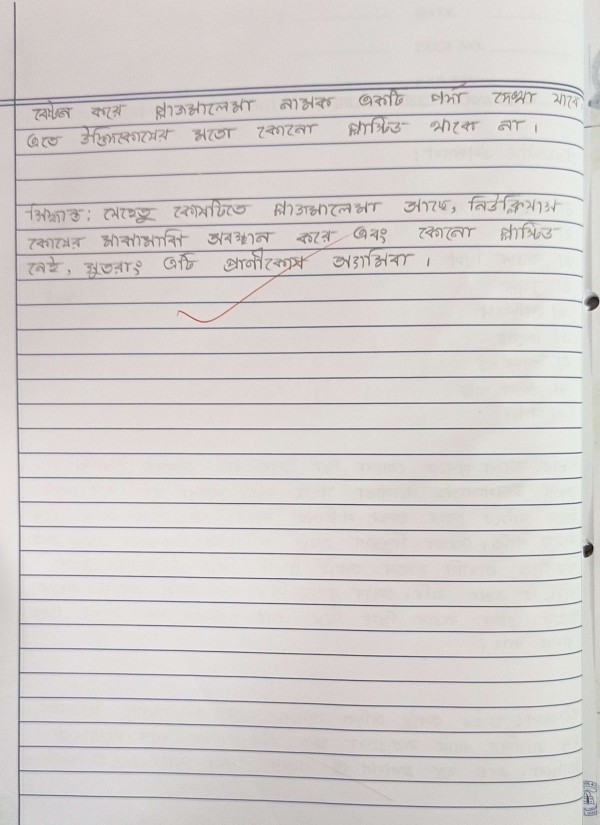 বেষ্টন করে প্লাজমালেমা নামক একটি পর্দা দেখা যাবে
এতে উদ্ভিদকোষের মতো কোনো প্লাস্টিড থাকে না।
সিদ্ধান্ত: যেহেতু কোষটিতে প্লাজমালেমা আছে, নিউক্লিয়াস
কোষের মাঝামাঝি অবস্থান করে এবং কোনো প্লাস্টিড
নেই, সুতরাং এটি প্রাণীকোষ